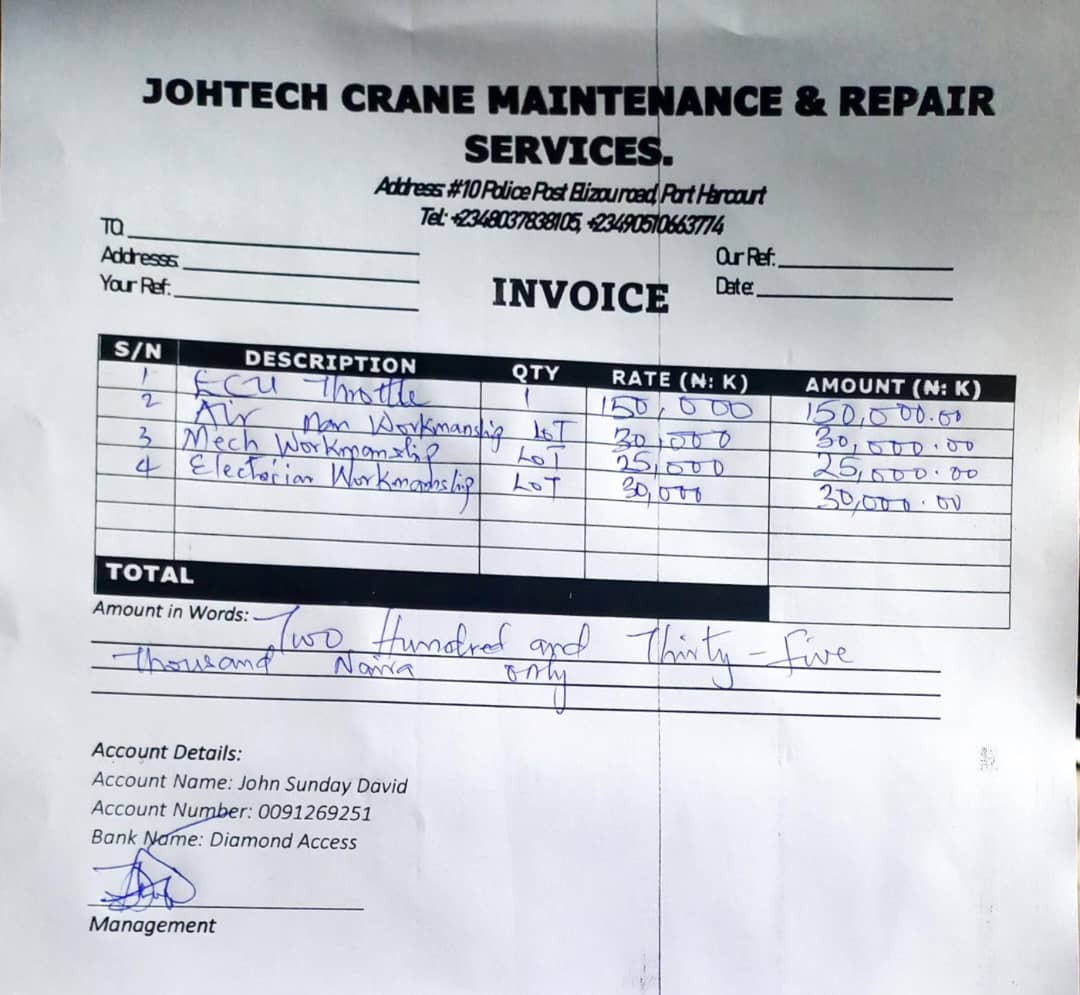 JOHTECH CRANE MAINTENANCE & REPAIR
SERVICES.
Address: #10 Police Post Elizou road, Port Harcourt
Tel: +2348037838105, +23490510663774
TO
Addresss:
Your Ref:
Our Ref:
Date:
INVOICE
S/N DESCRIPTION QTY RATE (₦: K) AMOUNT (₦: K)
1 ECU Throttle 1 150,000 150,000.00
2 Air Man Workmanship LOT 30,000 30,000.00
3 Mech Workmanship LOT 25,000 25,000.00
4 Electorian Workmanship LOT 30,000 30,000.00
TOTAL
Amount in Words: Two Hundred and Thirty-five
Thousand Naira only
Account Details:
Account Name: John Sunday David
Account Number: 0091269251
Bank Name: Diamond Access
Management